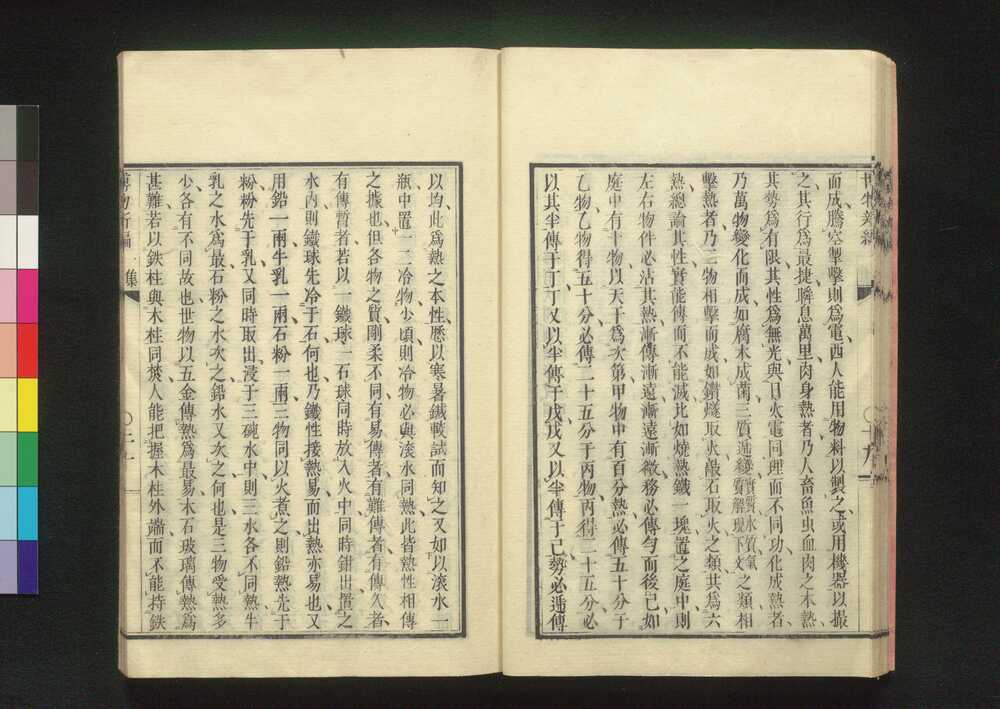 博物新編
十九
而成騰空掣擊則爲電西人能用物料以製之或用機器以撮
之其行爲最捷瞬息萬里肉身熱者乃人畜魚虫血肉之本熱
其勢爲有限其性爲無光與日火電同理而不同功化成熱者
乃萬物變化而成如腐木成菌三質遞變實質水質氣質解現下文之類相
擊熱者乃二物相擊而成如鑽燧取火敲石取火之類共爲六
熱總論其性實能傳而不能滅比如燒熱鐵一塊置之庭中則
左右物件必沾其熱漸傳漸遠漸遠漸微務必傳勻而後已如
庭中有十物以天干爲次第甲物中有百分熱必傳五十分于
乙物乙物得五十分必傳二十五分于丙物丙得二十五分必
以其半傳于丁丁又以半傳于戊戊又以半傳于己勢必遞傳
以均此爲熱之本性歷以寒暑鍼較試而知之又如以滾水一
瓶中置一二冷物少頃則冷物必與滾水同熱此皆熱性相傳
之據也但各物之質剛柔不同有易傳者有難傳者有傳久者
有傳暫者若以一鐵球一石球同時放入火中同時鉗出置之
水內則鐵球先冷于石何也乃鐵性接熱易而出熱亦易也又
用鉛一兩牛乳一兩石粉一兩三物同以火煮之則鉛熱先于
粉粉先于乳又同時取出浸于三碗水中則三水各不同熱牛
乳之水爲最石粉之水次之鉛水又次之何也是三物受熱多
少各有不同故也世物以五金傳熱爲最易木石玻璃傳熱爲
甚難若以鉄柱與木柱同焚人能把握木柱外端而不能持鉄
博物新編一集